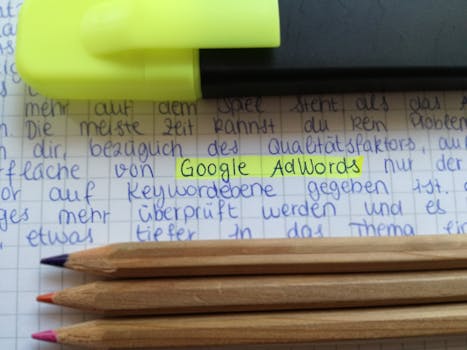 mehr auf dem Spiel steht als das
Die meiste Zeit kannst du kein Problem
dir, bezüglich des Qualitätsfaktors, au
rfläche von Google AdWords nur der
or auf Keywordebene gegeben ist,
ges mehr überprüft werden und es
etwas tiefer in das Thema ein